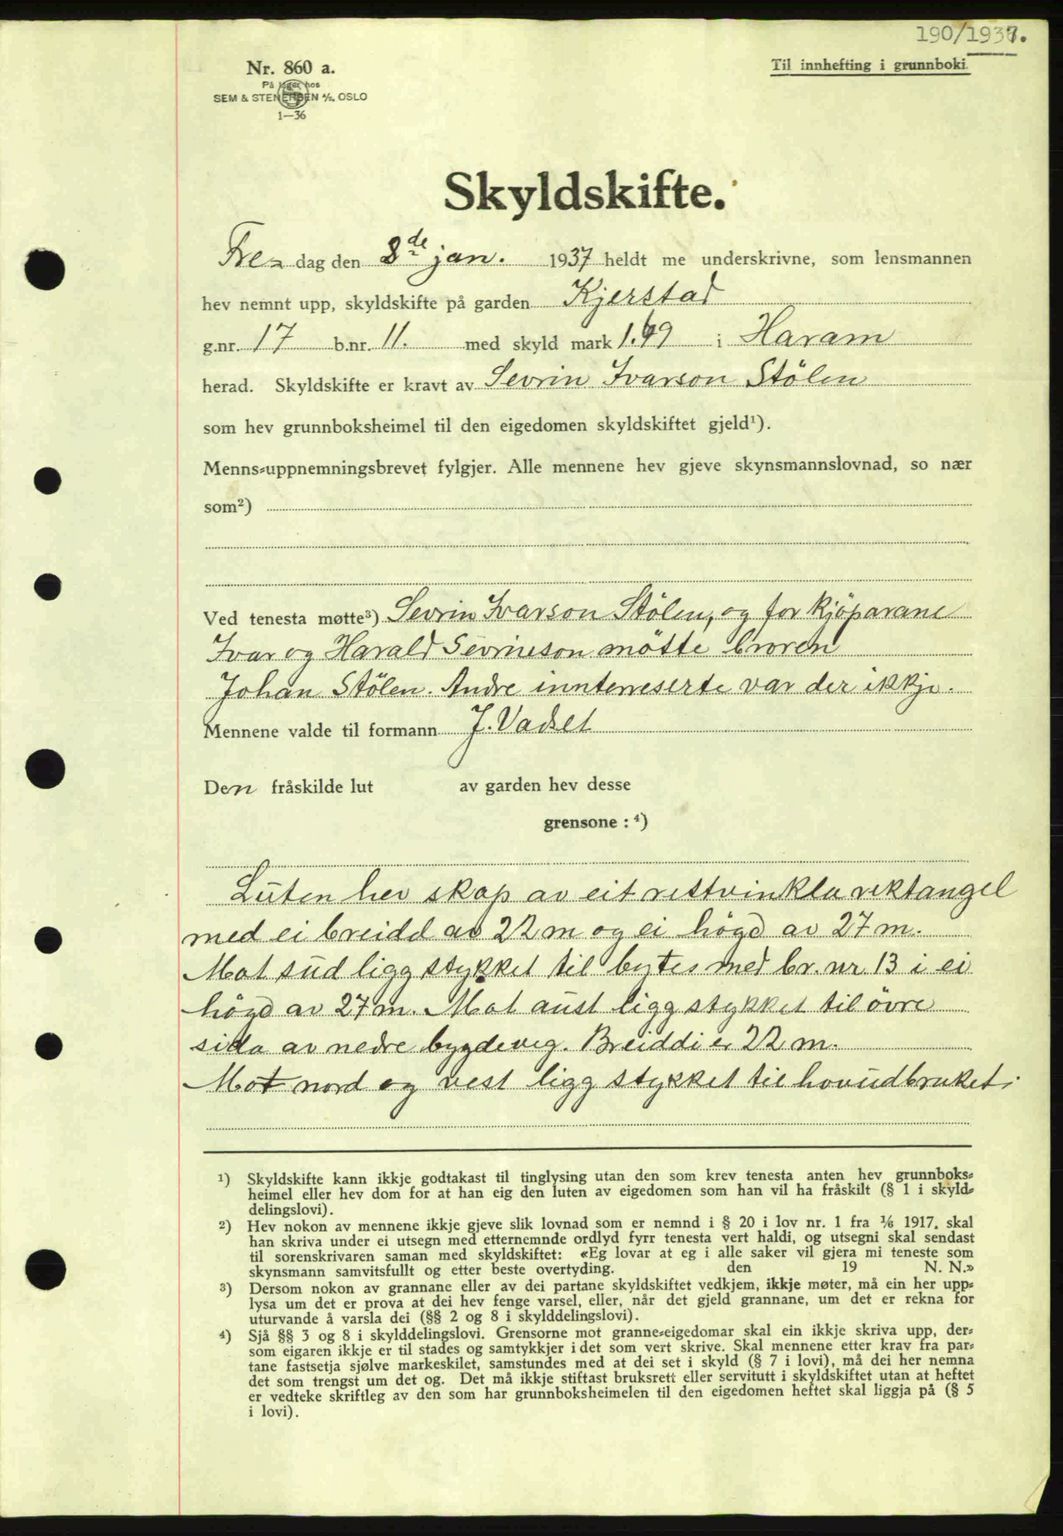 190/1937.
Nr. 860 a.
Til innhefting i grunnboki.
På lager hos
SEM & STENERSEN A/S, OSLO
1—36
Skyldskifte.
Fre- dag den 8de jan. 1937 heldt me underskrivne, som lensmannen
hev nemnt upp, skyldskifte på garden Kjerstad
g.nr. 17 b.nr. 11. med skyld mark 1.69 i Haram
herad. Skyldskifte er kravt av Sevrin Ivarson Stölen
som hev grunnboksheimel til den eigedomen skyldskiftet gjeld¹).
Menns-uppnemningsbrevet fylgjer. Alle mennene hev gjeve skynsmannslovnad, so nær
som²)
Ved tenesta møtte³) Sevrin Ivarson Stölen, og for kjöparane
Ivar og Harald Sevrineson mötte broren
Johan Stölen. Andre inntereserte var der ikkje.
Mennene valde til formann J. Vadset
Den fråskilde lut av garden hev desse
grensone : ⁴)
Luten hev skap av eit rettvinkla rektangel
med ei breidd av 22 m og ei högd av 27 m.
Mot sud ligg stykket til bytes med br. nr 13 i ei
högd av 27 m. Mot aust ligg stykket til övre
sida av nedre bygdeveg. Breiddi er 22 m.
Mot nord og vest ligg stykket til hovudbruket.
¹) Skyldskifte kann ikkje godtakast til tinglysing utan den som krev tenesta anten hev grunnboks-
heimel eller hev dom for at han eig den luten av eigedomen som han vil ha fråskilt (§ 1 i skyld-
delingslovi).
²) Hev nokon av mennene ikkje gjeve slik lovnad som er nemnd i § 20 i lov nr. 1 fra 1/6 1917, skal
han skriva under ei utsegn med etternemnde ordlyd fyrr tenesta vert haldi, og utsegni skal sendast
til sorenskrivaren saman med skyldskiftet: «Eg lovar at eg i alle saker vil gjera mi teneste som
skynsmann samvitsfullt og etter beste overtyding. den 19 N. N.»
³) Dersom nokon av grannane eller av dei partane skyldskiftet vedkjem, ikkje møter, må ein her upp-
lysa um det er prova at dei hev fenge varsel, eller, når det gjeld grannane, um det er rekna for
uturvande å varsla dei (§§ 2 og 8 i skylddelingslovi).
⁴) Sjå §§ 3 og 8 i skylddelingslovi. Grensorne mot granne-eigedomar skal ein ikkje skriva upp, der-
som eigaren ikkje er til stades og samtykkjer i det som vert skrive. Skal mennene etter krav fra par-
tane fastsetja sjølve markeskilet, samstundes med at dei set i skyld (§ 7 i lovi), må dei her nemna
det som trengst um det og. Det må ikkje stiftast bruksrett eller servitutt i skyldskiftet utan at heftet
er vedteke skriftleg av den som har grunnboksheimelen til den eigedomen heftet skal liggja på (§ 5
i lovi).